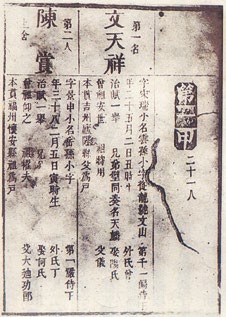 第一甲 二十一人
第一名
文天祥
字宋瑞小名雲孫小字從龍號文山 第千一 侍下
年二十五月二日 時生 外氏曾
治賦一舉 同奏名天麟 娶 氏
曾祖安世 祖時用 父儀
本貫吉州廬陵縣父為戶
第二人
陳賞
小名 孫小字 第一 侍下
年三十八二月五日寅時生 外氏丁
治賦一舉 娶何氏
曾祖仰之 父大廸功郎
本貫福州懷安縣祖為戶